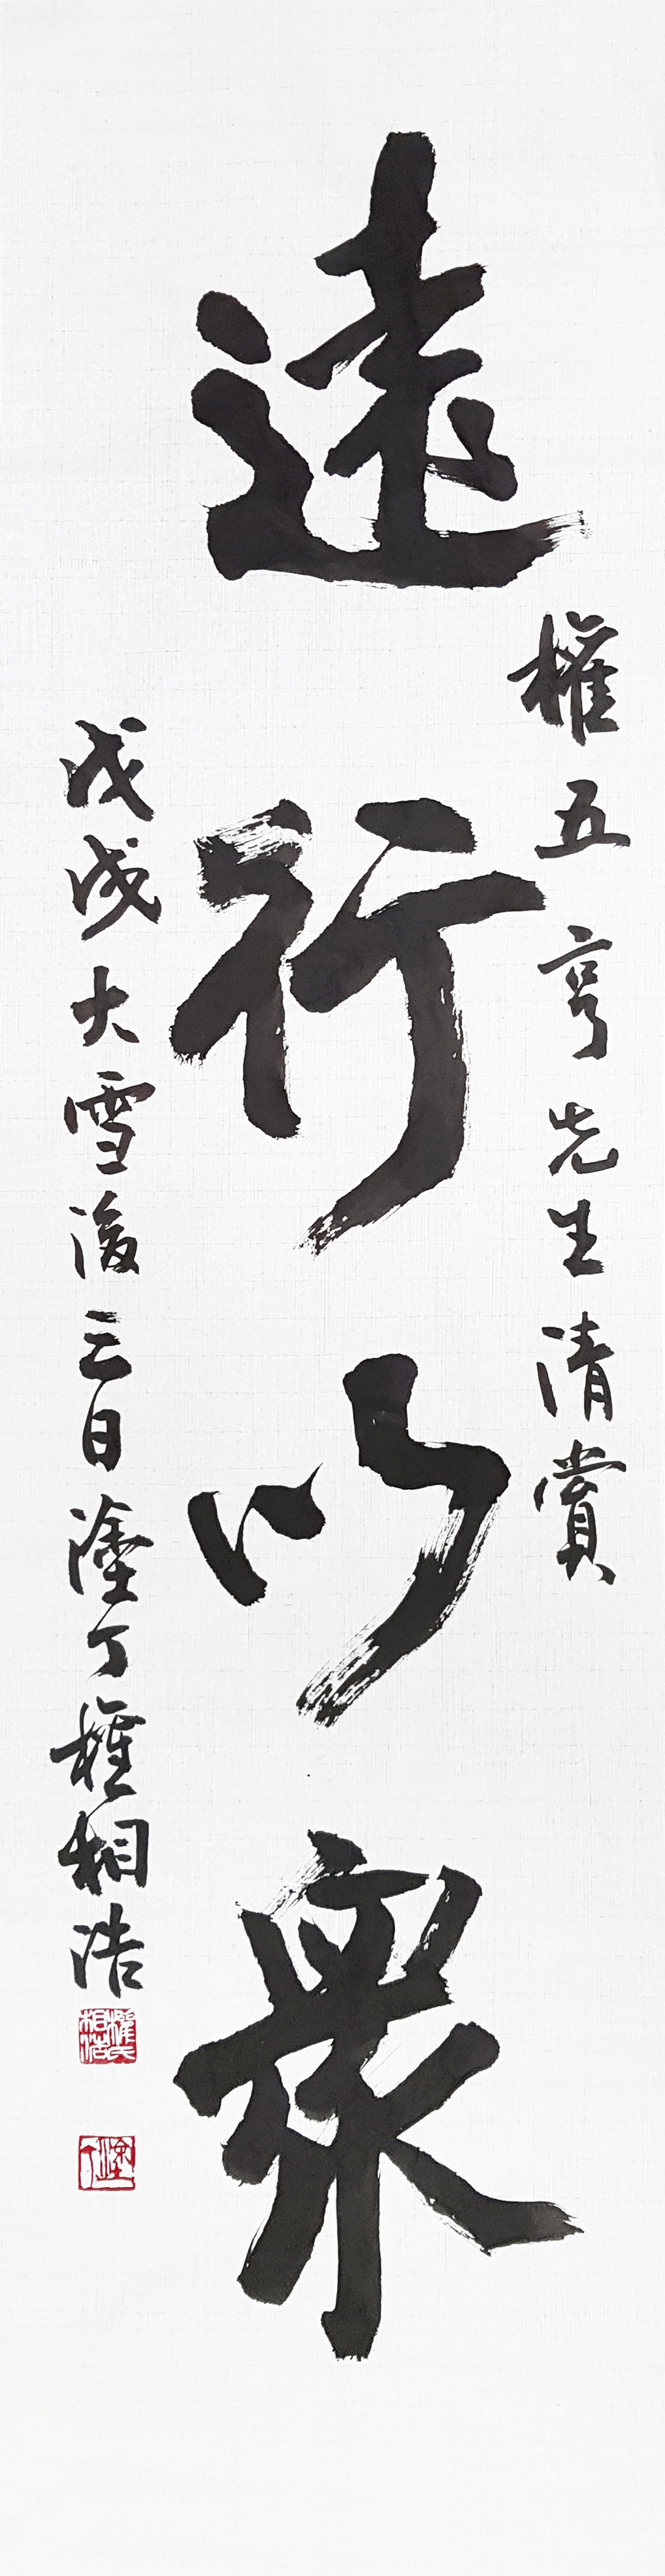 權五亨先生清賞
遠行以衆
戊戌大雪後三日塗丁權相浩
權氏相浩
塗丁